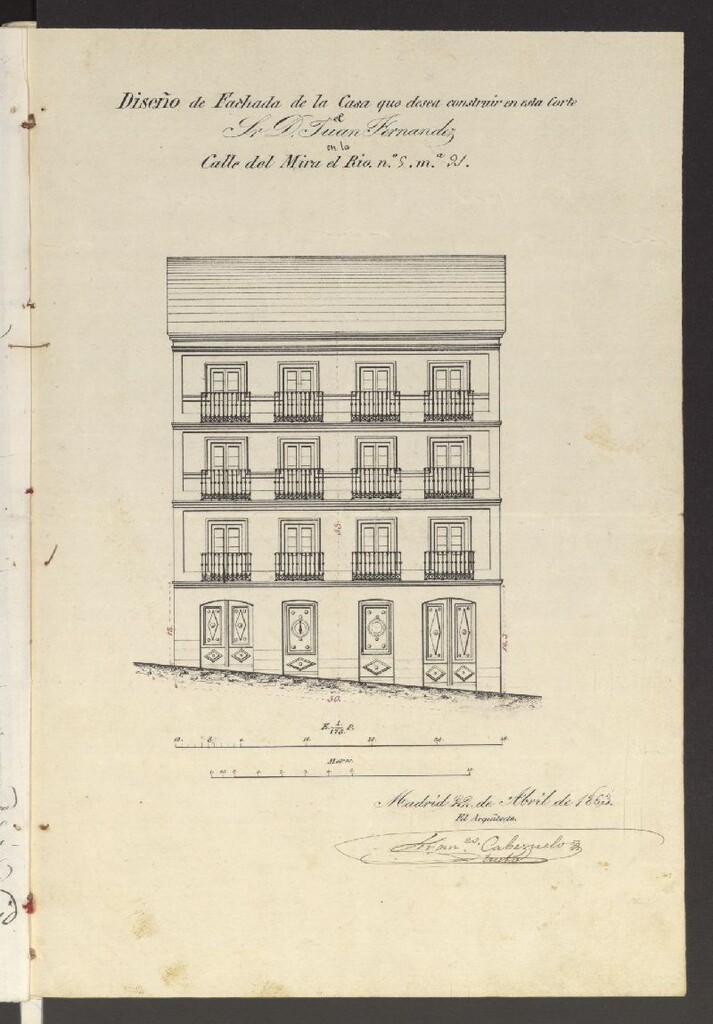 Diseño de Fachada de la Casa que desea construir en esta Corte
el
Sr D. Juan Fernandez
en la
Calle del Mira el Rio. n.º 5. m.ª 91.
53.
50.
E. 1/175 P.
Metros.
Madrid 22 de Abril de 1863.
El Arquitecto.
Cabezuelo